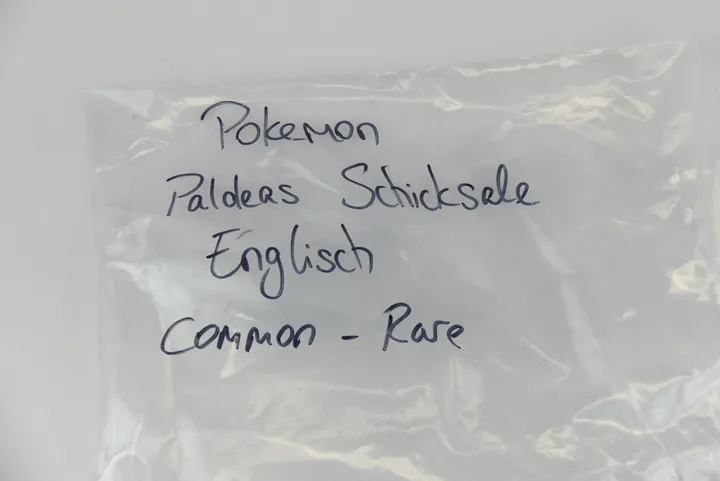 Pokemon
Paldeas Schicksale
Englisch
Common - Rare